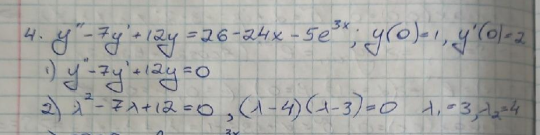 4. y'' - 7y' + 12y = 26 - 24x - 5e^{3x}; y(0)=1, y'(0)=2
1) y'' - 7y' + 12y = 0
2) λ² - 7λ + 12 = 0, (λ-4)(λ-3)=0 λ₁=3, λ₂=4
3x